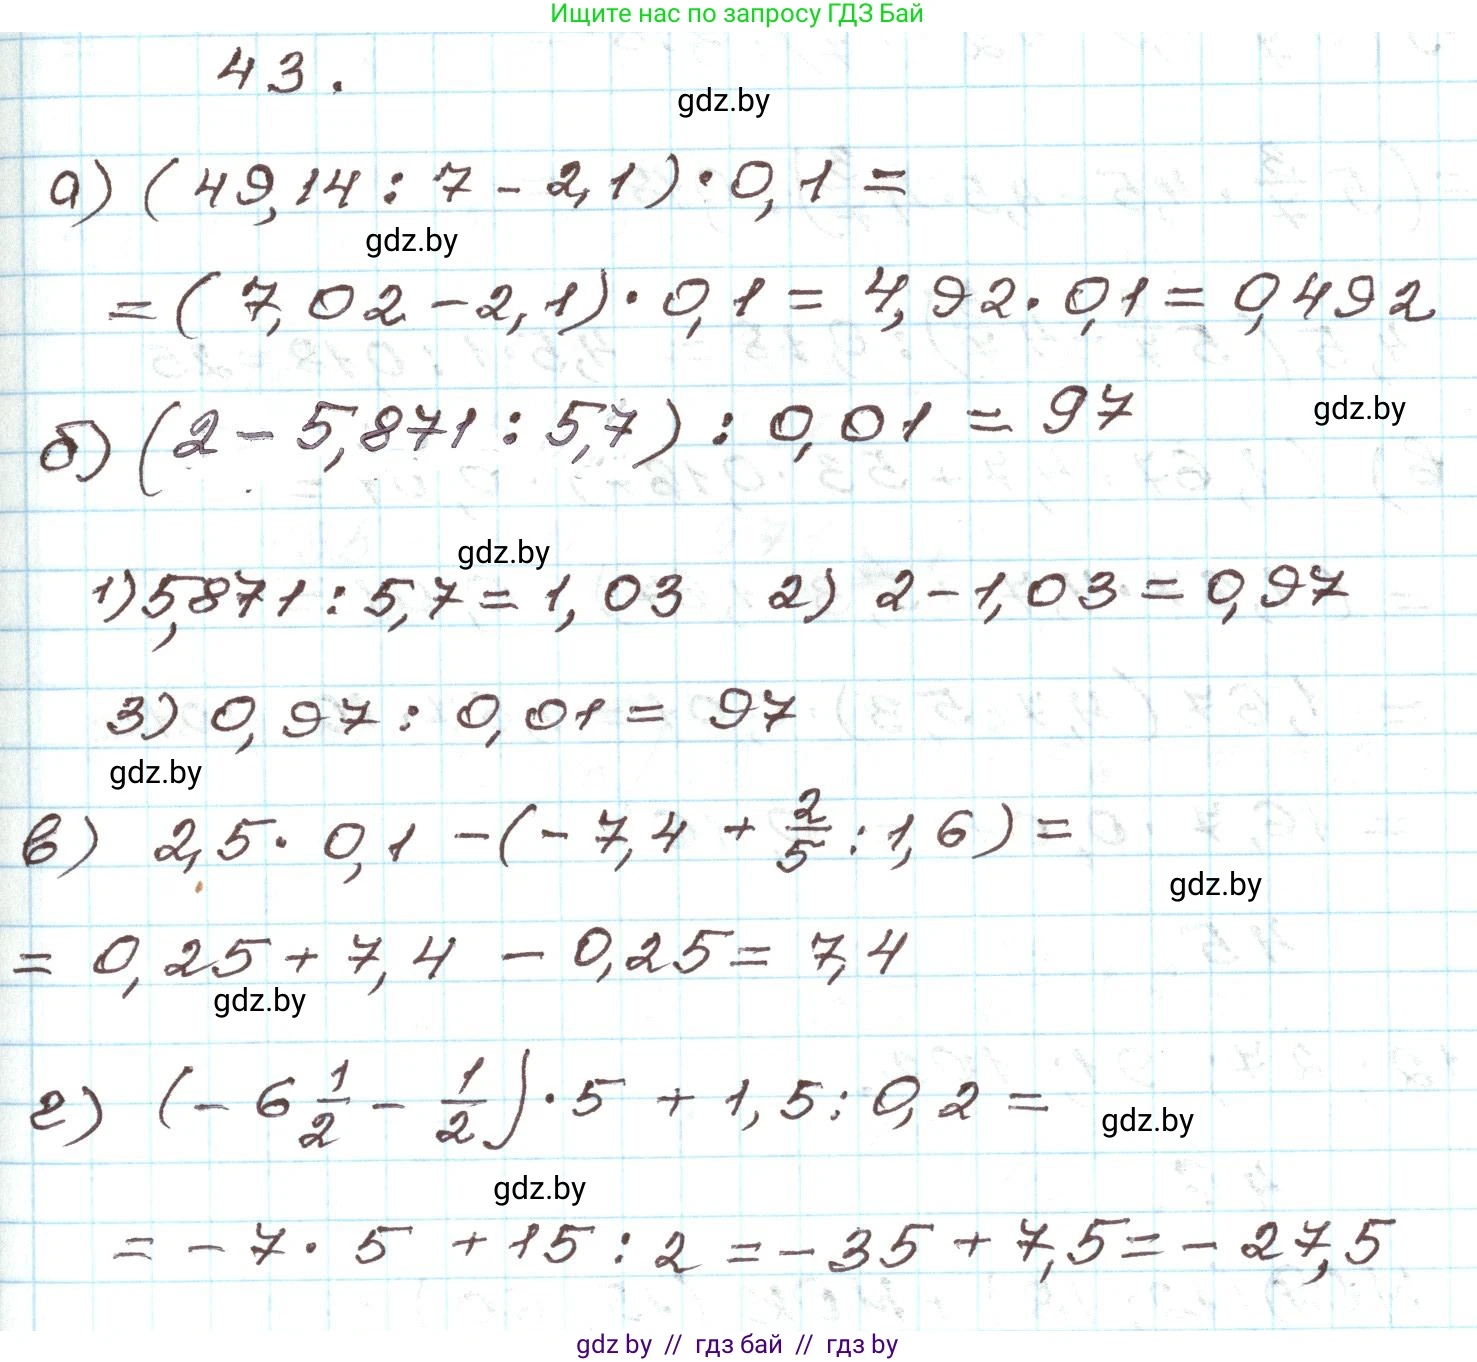 Ищите нас по запросу ГДЗ Бай
43.
gdz.by
а) (49,14 : 7 - 2,1) · 0,1 =
gdz.by
= (7,02 - 2,1) · 0,1 = 4,92 · 0,1 = 0,492
б) (2 - 5,871 : 5,7) : 0,01 = 97
gdz.by
gdz.by
1) 5,871 : 5,7 = 1,03 2) 2 - 1,03 = 0,97
3) 0,97 : 0,01 = 97
gdz.by
в) 2,5 · 0,1 - (- 7,4 + 2/5 : 1,6) =
gdz.by
= 0,25 + 7,4 - 0,25 = 7,4
gdz.by
г) (- 6 1/2 - 1/2) · 5 + 1,5 : 0,2 =
gdz.by
gdz.by
= - 7 · 5 + 15 : 2 = - 35 + 7,5 = - 27,5
gdz by // гдз бай // гдз by